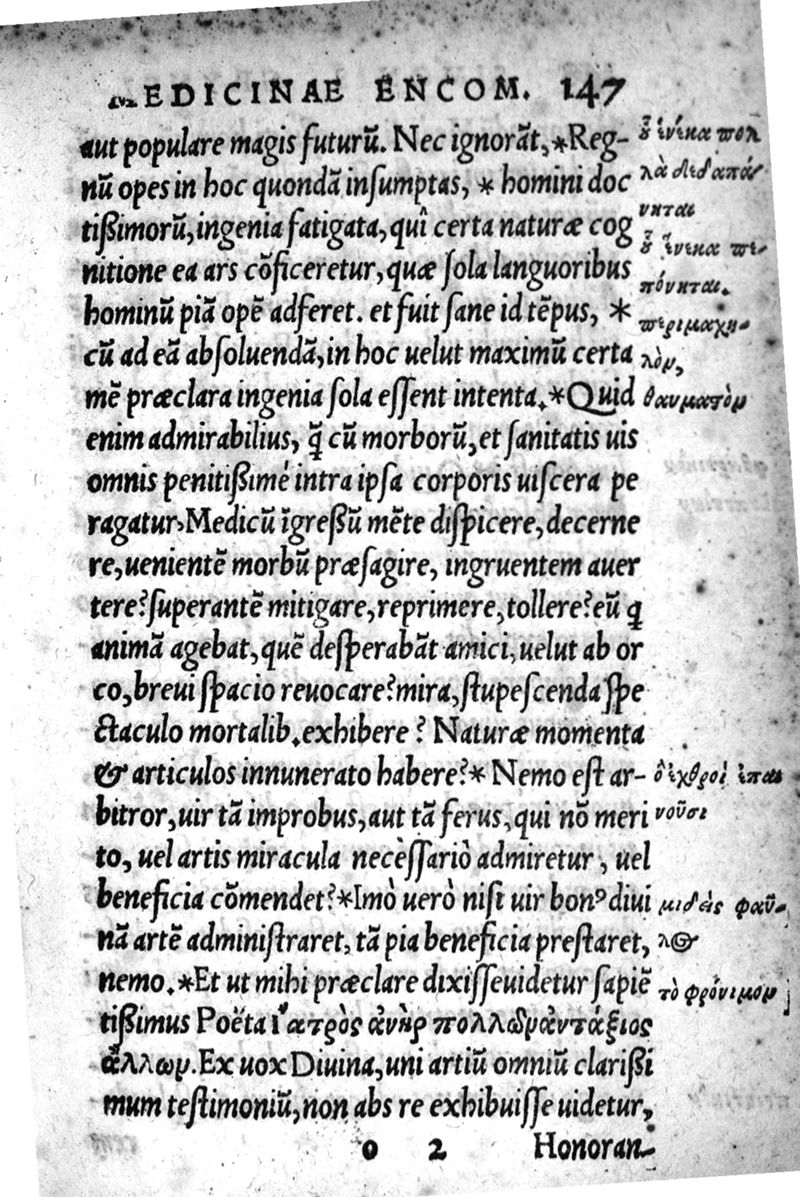 MEDICINAE ENCOM. 147
aut populare magis futurū. Nec ignorāt, *Reg-
nū opes in hoc quondā insumptas, * homini doc
tißimorū, ingenia fatigata, quî certa naturæ cog
nitione ea ars cōficeretur, quæ sola languoribus
hominū piā opē adferet. et fuit sane id tēpus, *
cū ad eā absoluendā, in hoc uelut maximū certa
mē præclara ingenia sola essent intenta. *Quid
enim admirabilius, q̄̃ cū morborū, et sanitatis uis
omnis penitißimè intra ipsa corporis uiscera pe
ragatur, Medicū īgreßū mēte dispicere, decerne
re, uenientē morbū præsagire, ingruentem auer
tere? superantē mitigare, reprimere, tollere? eū q
animā agebat, quē desperabāt amici, uelut ab or
co, breui spacio reuocare? mira, stupescenda spe
ctaculo mortalib. exhibere? Naturæ momenta
& articulos innunerato habere? * Nemo est ar-
bitror, uir tā improbus, aut tā ferus, qui nō meri
to, uel artis miracula necèssariò admiretur, uel
beneficia cōmendet? *Imò uerò nisi uir bonꝰ diui
nā artē administraret, tā pia beneficia prestaret,
nemo. *Et ut mihi præclare dixisseuidetur sapiē
tißimus Poëta ἰατρὸς ἀνὴρ πολλῶν ἀντάξιος
ἄλλων. Ex uox Diuina, uni artiū omniū clarißi
mum testimoniū, non abs re exhibuisse uidetur,
o 2 Honoran-
οὗ ἕνεκα πολ
λὰ δεδαπάν
νηται
οὗ ἕνεκα πε-
πόνηται.
περιμαχη-
λὸν,
θαυματὸν
ὃ ἐχθροὶ ἐπαι
νοῦσι
μιδεὶς φαῦ-
λος
τὸ φρόνιμον